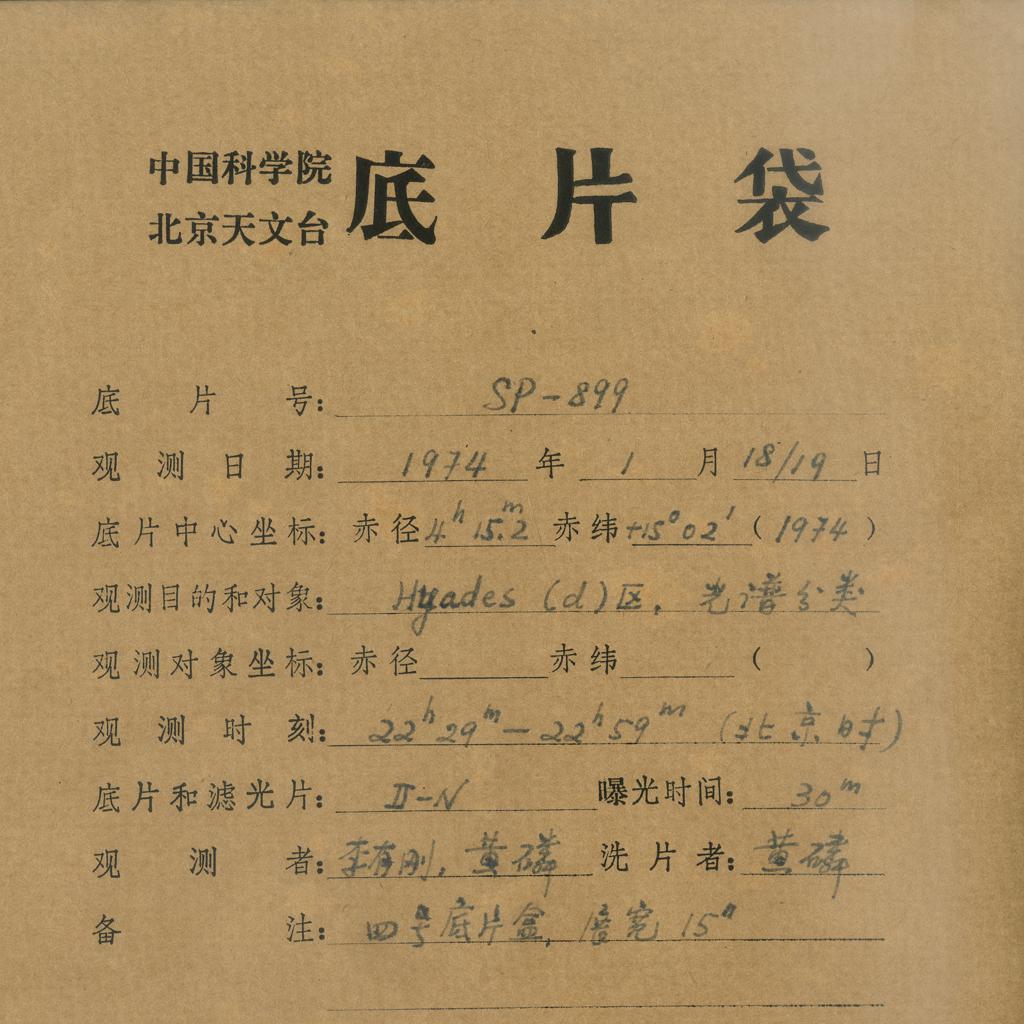 中国科学院
北京天文台
底片袋
底片号: SP-899
观测日期: 1974 年 1 月 18/19 日
底片中心坐标: 赤径 4ʰ 15.ᵐ2 赤纬 +15°02′ (1974)
观测目的和对象: Hyades (d)区, 光谱分类
观测对象坐标: 赤径 赤纬 ( )
观测时刻: 22ʰ29ᵐ—22ʰ59ᵐ (北京时)
底片和滤光片: II-N 曝光时间: 30ᵐ
观测者: 李有刚, 黄磷 洗片者: 黄磷
备注: 四号底片盒, 宽 15″